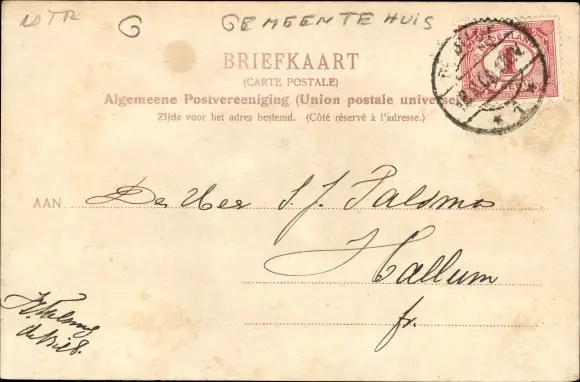 UTR G GEMEENTEHUIS
BRIEFKAART
(CARTE POSTALE)
Algemeene Postvereeniging (Union postale universel
Zijde voor het adres bestemd. (Côté réservé à l'adresse.)
NEDERLAND
1
AAN De Heer S. J. Palsma
Hallum
fr.
de Bilt.